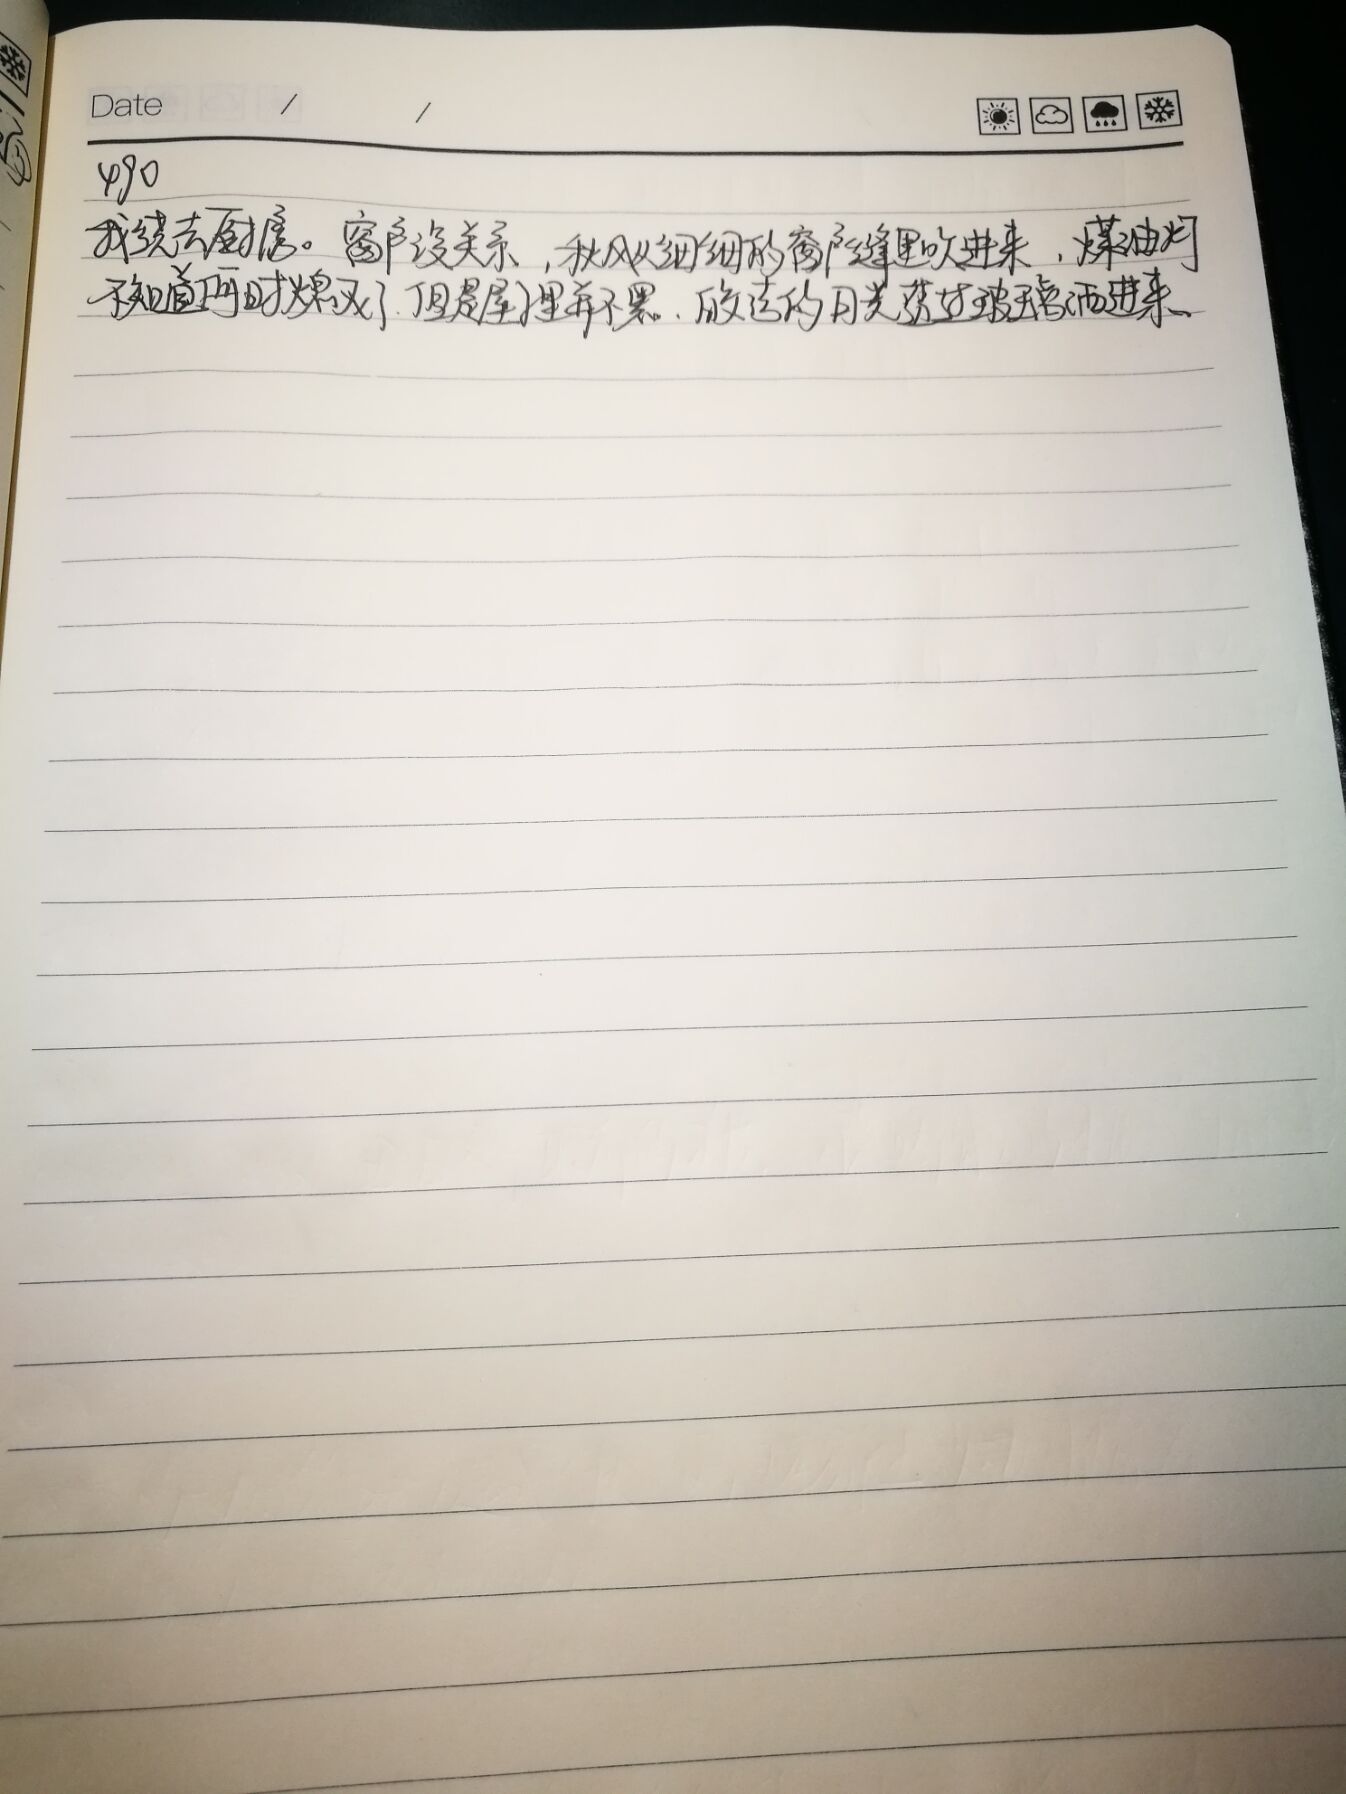 Date / /
490
我绕去厨房。窗户没关系，秋风从细细的窗户缝里吹进来，煤油灯
不知道何时熄灭了.但是屋子里并不黑.皎洁的月光玻璃洒进来、